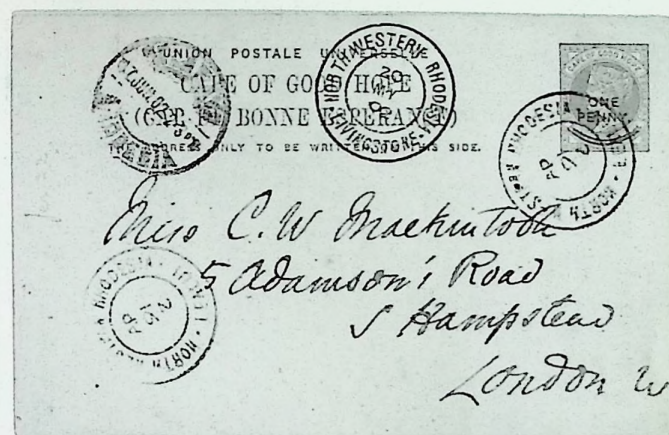 UNION POSTALE UNIVERSELLE
CAPE OF GOOD HOPE
(CAP DE BONNE ESPERANCE)
THE ADDRESS ONLY TO BE WRITTEN ON THIS SIDE.
ONE
PENNY
NORTH WESTERN RHODESIA
20
LIVINGSTONE
RHODESIA
NORTH
AP
RHODESIA
LEALUI
NORTH
AP
Miss C. W Mackintosh
5 Adamson's Road
S Hampstead
London W